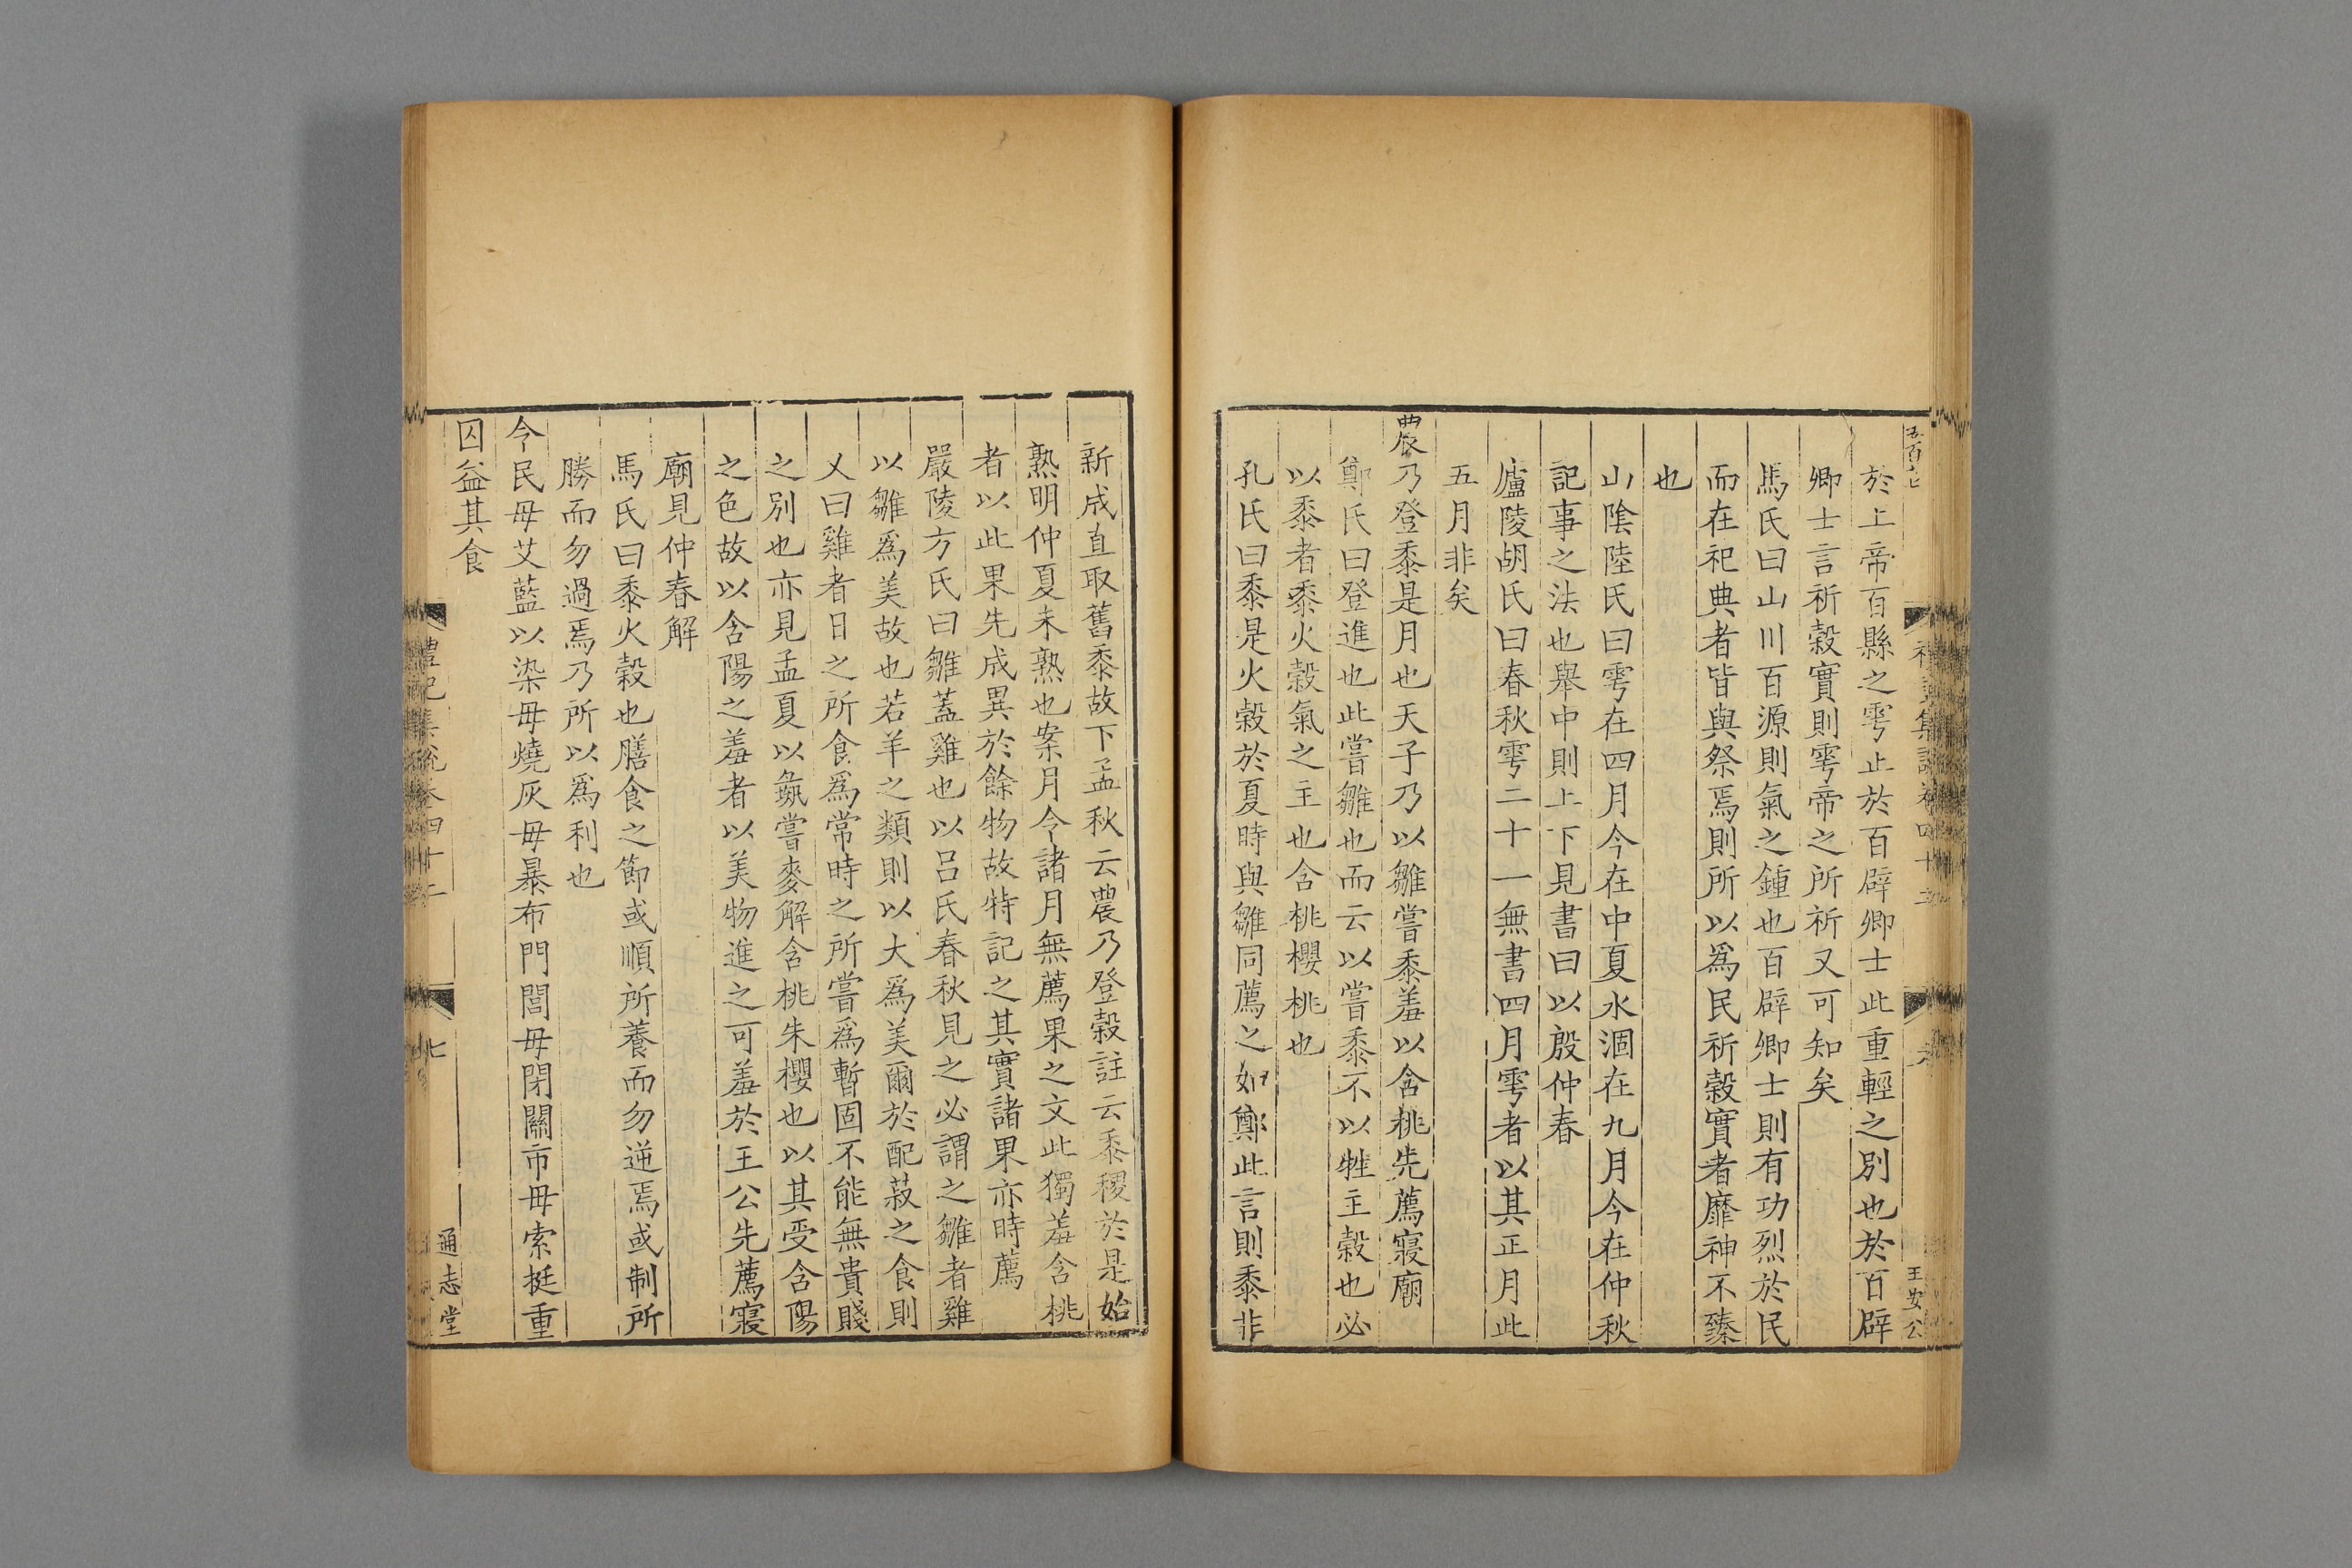 於上帝百縣之雩止於百辟卿士此重輕之別也於百辟
卿士言祈穀實則雩帝之所祈又可知矣
馬氏曰山川百源則氣之鍾也百辟卿士則有功烈於民
而在祀典者皆與祭焉則所以爲民祈穀實者靡神不臻
也
山陰陸氏曰雩在四月今在中夏水涸在九月今在仲秋
記事之法也舉中則上下見書曰以殷仲春
廬陵胡氏曰春秋雩二十一無書四月雩者以其正月此
五月非矣
農乃登黍是月也天子乃以雛嘗黍羞以含桃先薦寢廟
鄭氏曰登進也此嘗雛也而云以嘗黍不以牲主穀也必
以黍者黍火穀氣之主也含桃櫻桃也
孔氏曰黍是火穀於夏時與雛同薦之如鄭此言則黍非
王安公
新成直取舊黍故下孟秋云農乃登穀註云黍稷於是始
熟明仲夏未熟也案月令諸月無薦果之文此獨羞含桃
者以此果先成異於餘物故特記之其實諸果亦時薦
嚴陵方氏曰雛蓋雞也以呂氏春秋見之必謂之雛者雞
以雛爲美故也若羊之類則以大爲美爾於配菽之食則
乂曰雞者日之所食爲常時之所嘗爲暫固不能無貴賤
之別也亦見孟夏以彘嘗麥解含桃朱櫻也以其受含陽
之色故以含陽之羞者以美物進之可羞於王公先薦寢
廟見仲春解
馬氏曰黍火穀也膳食之節或順所養而勿逆焉或制所
勝而勿過焉乃所以爲利也
今民毋艾藍以染毋燒灰毋暴布門閭毋閉關市毋索挺重
囚益其食
禮記集說卷四十二
七
通志堂